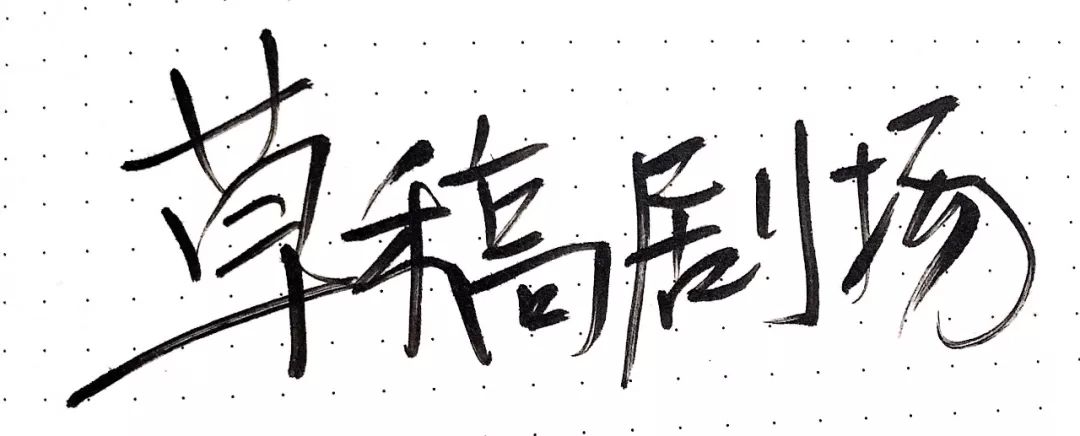 草稿剧场